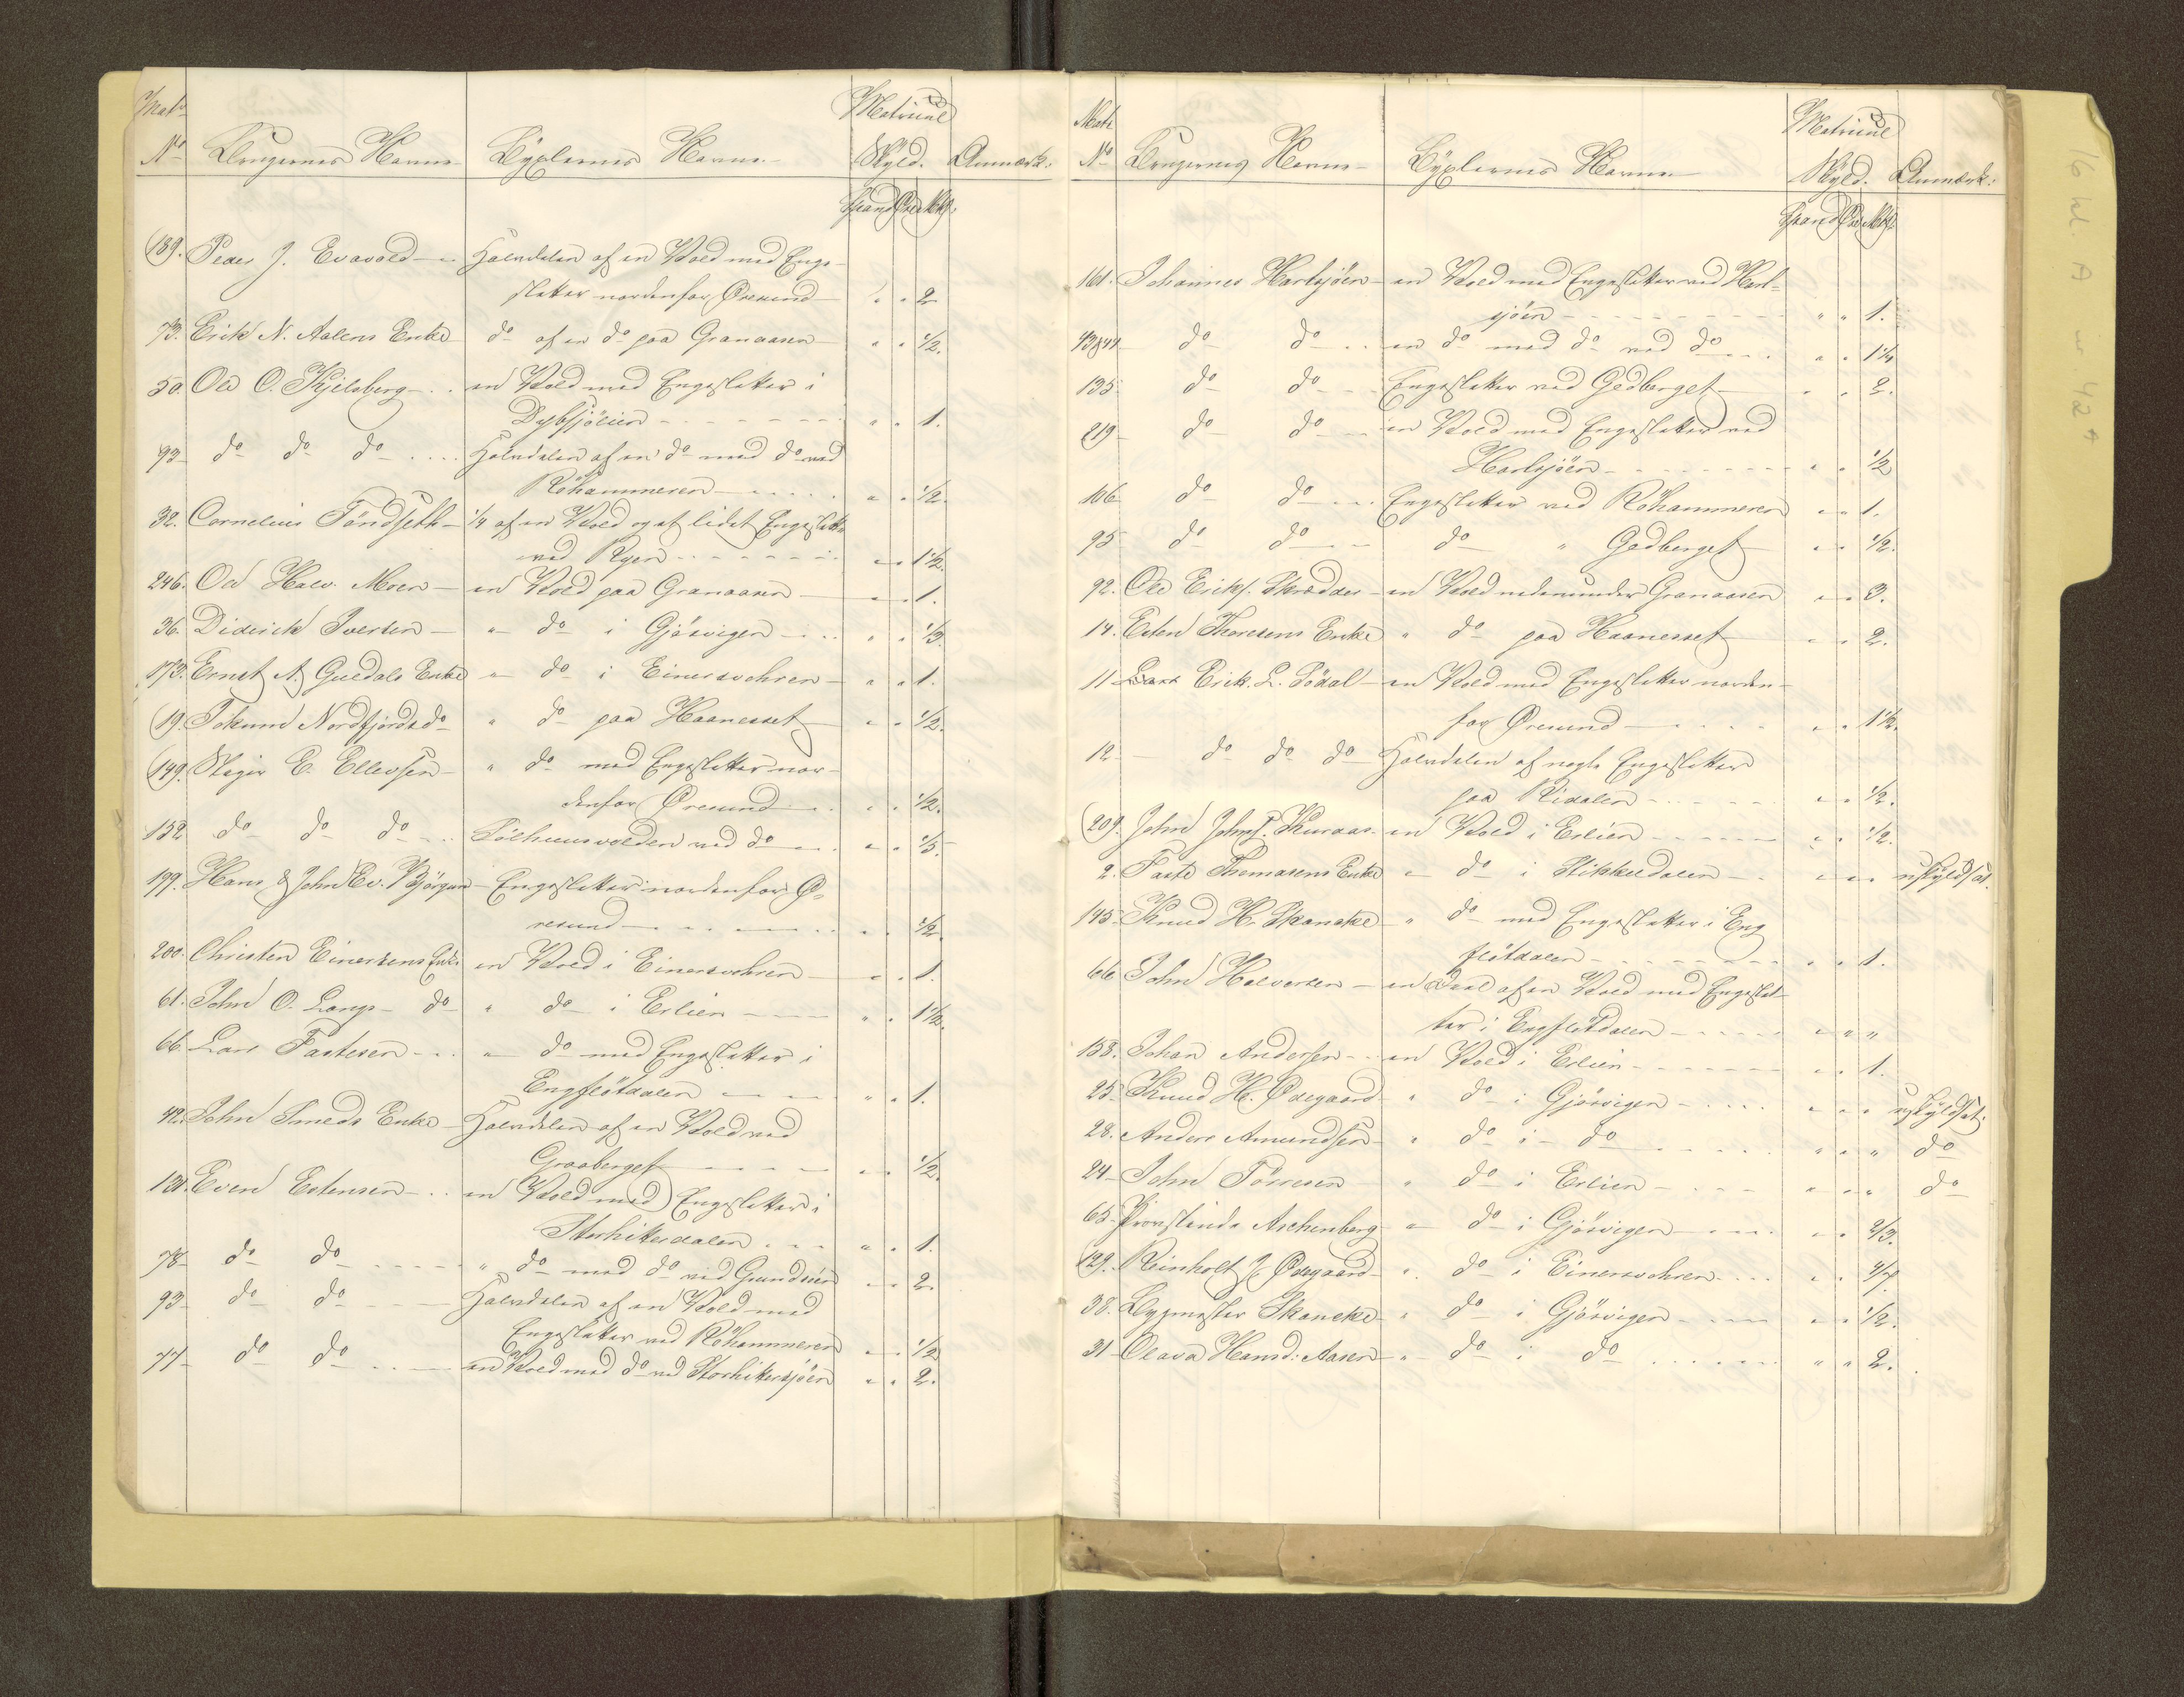 Matr
No Brugernes Navne Bÿxlernes Navne Matricul Skyld. Anmærk:
Spand Øre Mkl:
189. Peder J. Evavold Halvdelen af en Vold med Enge-
sletter nordenfor Øresund " " 2
73. Erick N. Aalens Enke do af en do paa Granaasen " " 1/2.
50. Ole O. Kjelsberg en Vold med Engesletter i
Dybsjölien " " 1.
93 do do do Halvdelen af en do med do ved
Röhammeren " " 1/2.
32. Cornelius Töndseth 1/4 af en Vold og et lidet Engeslette
ved Ryen " " 1 1/2.
246. Ole Halv. Moen en Vold paa Granaasen " " 1.
36. Diderick Iversen " do i Gjösvigen " " 1/3.
173. Ernst A. Guldals Enke " do i Einersvohren " " 1.
19. Tokum Nordfjords do " do paa Haanesset " " 1/2.
149. Steger E. Ellevsen " do med Engesletter nor-
denfor Øresund " " 1/2.
152 do do do Tolhuusvolden ved do " " 1/5.
199. Hans & John Ev. Bjørgen Engesletter nordenfor Ø-
resund " " 1/2.
200. Christen Einersens Enke en Vold i Einersvohren " " 1.
61. John O. Langs do " do i Erlien " " 1 1/2.
66. Lars Fastesen " do med Engesletter i
Engflötdalen " " 1.
42. John Smeds Enke Halvdelen af en Vold ved
Graaberget " " 1/2.
131. Even Estensen en Vold med Engesletter i
Storhitterdalen " " 1.
78 do do " do med do ved Grundsöen " " 2.
93 do do Halvdelen af en Vold med
Engesletter ved Röhammeren " " 1/2
77 do do en Vold med do ved Storhittersjöen " " 2.
Matr
No Brugernes Navne Bÿxlernes Navne Matricul Skyld. Anmærk:
Spand Øre Mkl:
161. Johannes Harsjöen en Vold med Engesletter ved Har-
sjöen " " 1.
43&44 do do en do med do ved do " " 1 1/4
135 do do Engesletter ved Gedberget " " 2.
219 do do en Vold med Engesletter ved
Harsjöen " " 1/2
106 do do Engesletter ved Röhammeren " " 1.
95 do do do " Gedberget " " 1/2.
92. Ole Ericks. Skrædder en Vold nedenunder Granaasen " " 3.
14. Esten Thoresens Enke " do paa Haanesset " " 2.
11 Erick. L. Södal en Vold med Engesletter norden-
for Øresund " " 1 1/2.
12 do do do Halvdelen af nogle Engesletter
paa Ridalen " " 1/2.
209. John Johns. Kuraas en Vold i Erlien " " 1/2.
2. Faste Thomasens Enke " do i Stikkeldalen " " " uskyldsat.
145 Knud H. Skancke " do med Engesletter i Eng
flötdalen " " 1.
66 John Halvorsen en Deel af en Vold med Engeslet-
ter i Engflötdalen " " "
158. Johan Andersen en Vold i Erlien " " 1.
25 Knud H. Ødegaard " do i Gjösvigen " " " uskyldsat.
28. Anders Amundsen " do i do " " " do
24 John Törresen " do i Erlien " " " do
65. Provstinde Aschenberg " do i Gjösvigen " " 2/3.
129. Reinholt J. Ødegaard " do i Einersvohren " "
38. Bygmester Skancke " do i Gjösvigen " " 1/2.
31 Olava Hansd: Aasen " do i do " " 2.
16 kl. A nr 42 A